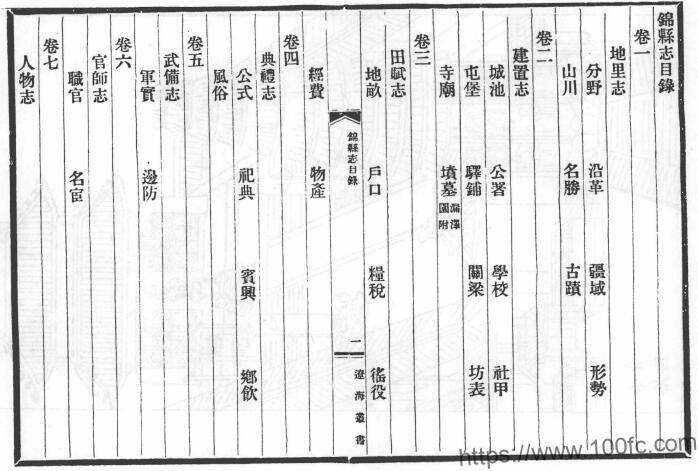 錦縣志目錄
卷一
地里志
分野 沿革 疆域 形勢
山川 名勝 古蹟
卷二
建置志
城池 公署 學校 社甲
屯堡 驛鋪 關梁 坊表
寺廟 墳墓 漏澤園附
卷三
田賦志
地畝 戶口 糧稅 徭役
錦縣志目錄 一 遼海叢書
經費 物產
卷四
典禮志
公式 祀典 賓興 鄉飲
風俗
卷五
武備志
軍實 邊防
卷六
官師志
職官 名宦
卷七
人物志
https://www.100fc.com